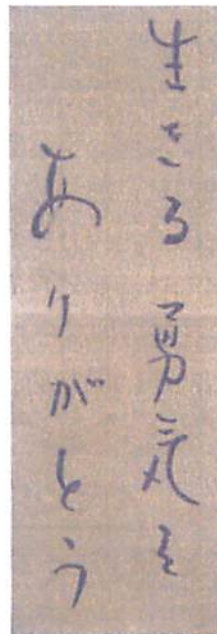 生きる勇気を
ありがとう